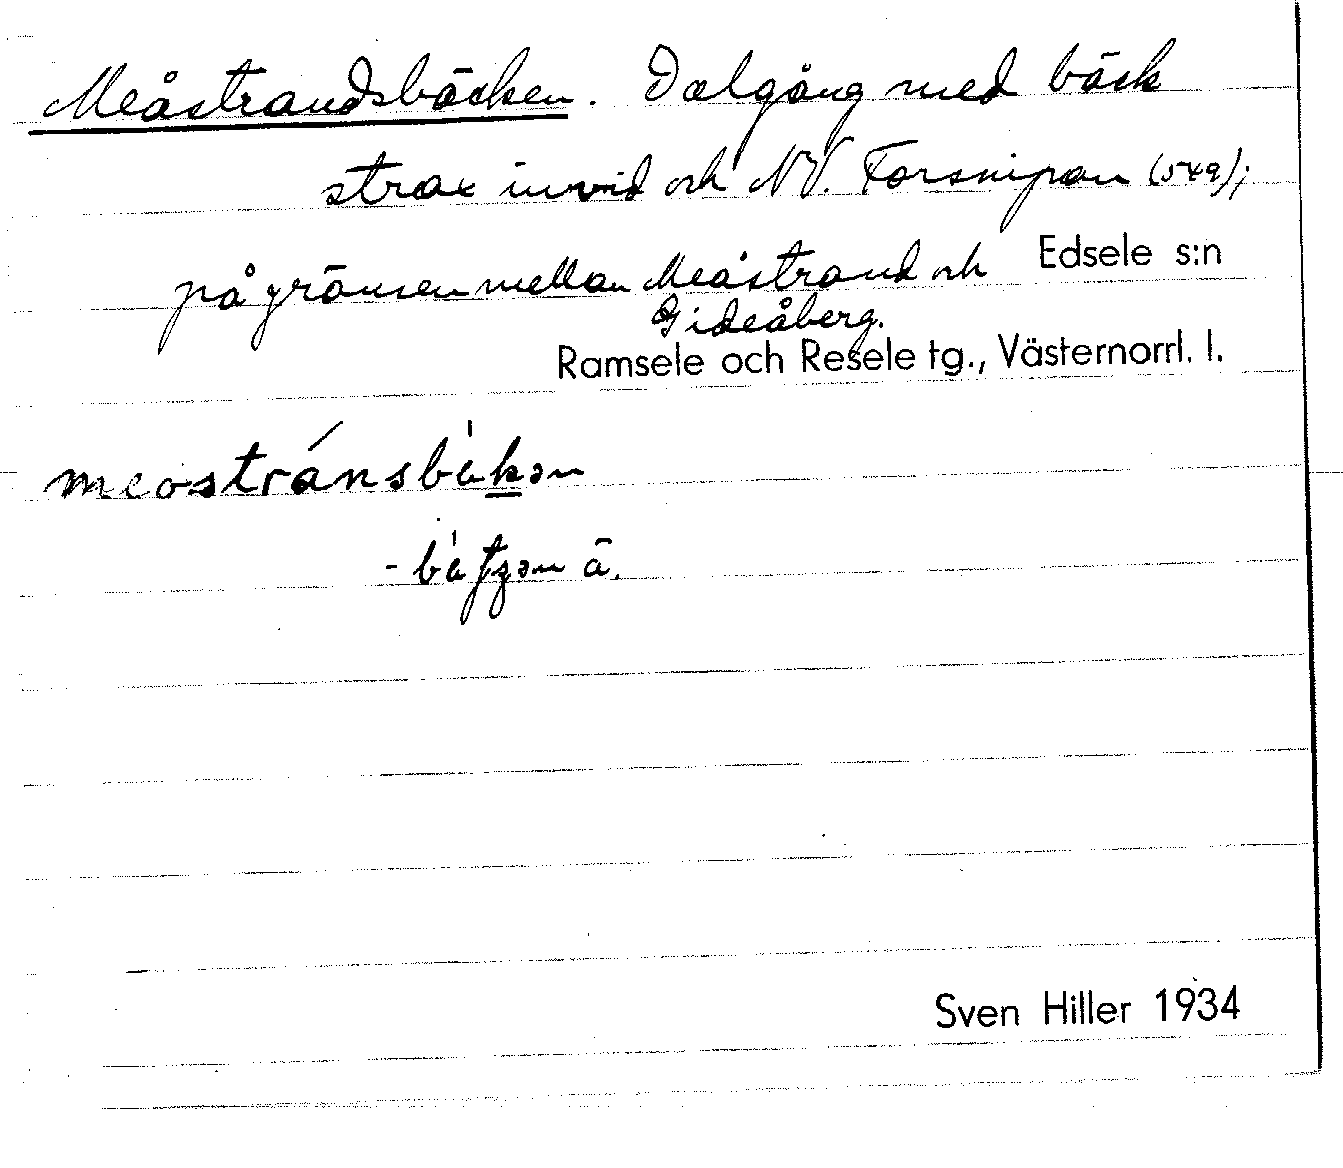 Meåstrandsbäcken. Dalgång med bäck
strax invid och NV. Forsnipan (549);
på gränsen mellan Meåstrand och Edsele s:n
Gideåberg.
Ramsele och Resele tg., Västernorrl. l.
meostránsbàkən
Sven Hiller 1934